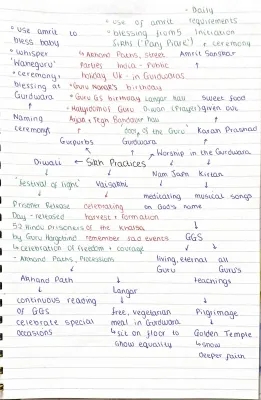 - Daily
° use of amrit requirements
° use of amrit to
bless baby
° blessing from 5 initiation
Sikhs ('Panj Piare') + ceremony
° whisper
'Waheguru'
↳ Akhand Paths, street Amrit Sanskar
parties India - Public
° ceremony,
blessing at
Gurdwara
holiday UK - in Gurdwaras
° Guru Nanak's birthday
° Guru GS birthday Langar hall Sweet food
Naming
ceremony
Diwan (Prayer) given out
door of the Guru' Karah Prashad
Gurpurbs Gurdwara
Worship in the Gurdwara
Diwali ← Sikh Practices
Nam Japna Kirtan
'festival of light' Vaisakhi
meditating musical songs
on God's name
Prisoner Release celebrating
Day - released harvest + formation
52 Hindu prisoners of the Khalsa
by Guru Hargobind remember sad events GGS
↳ celebration of freedom + courage
- Akhand Paths, Processions living, eternal all
Guru Guru's
teachings
Akhand Path
Langar
continuous reading
of GGS free, vegetarian Pilgrimage
celebrate special meal in Gurdwara
occasions ↳ sit on floor to Golden Temple
show equality ↳ show
deeper faith